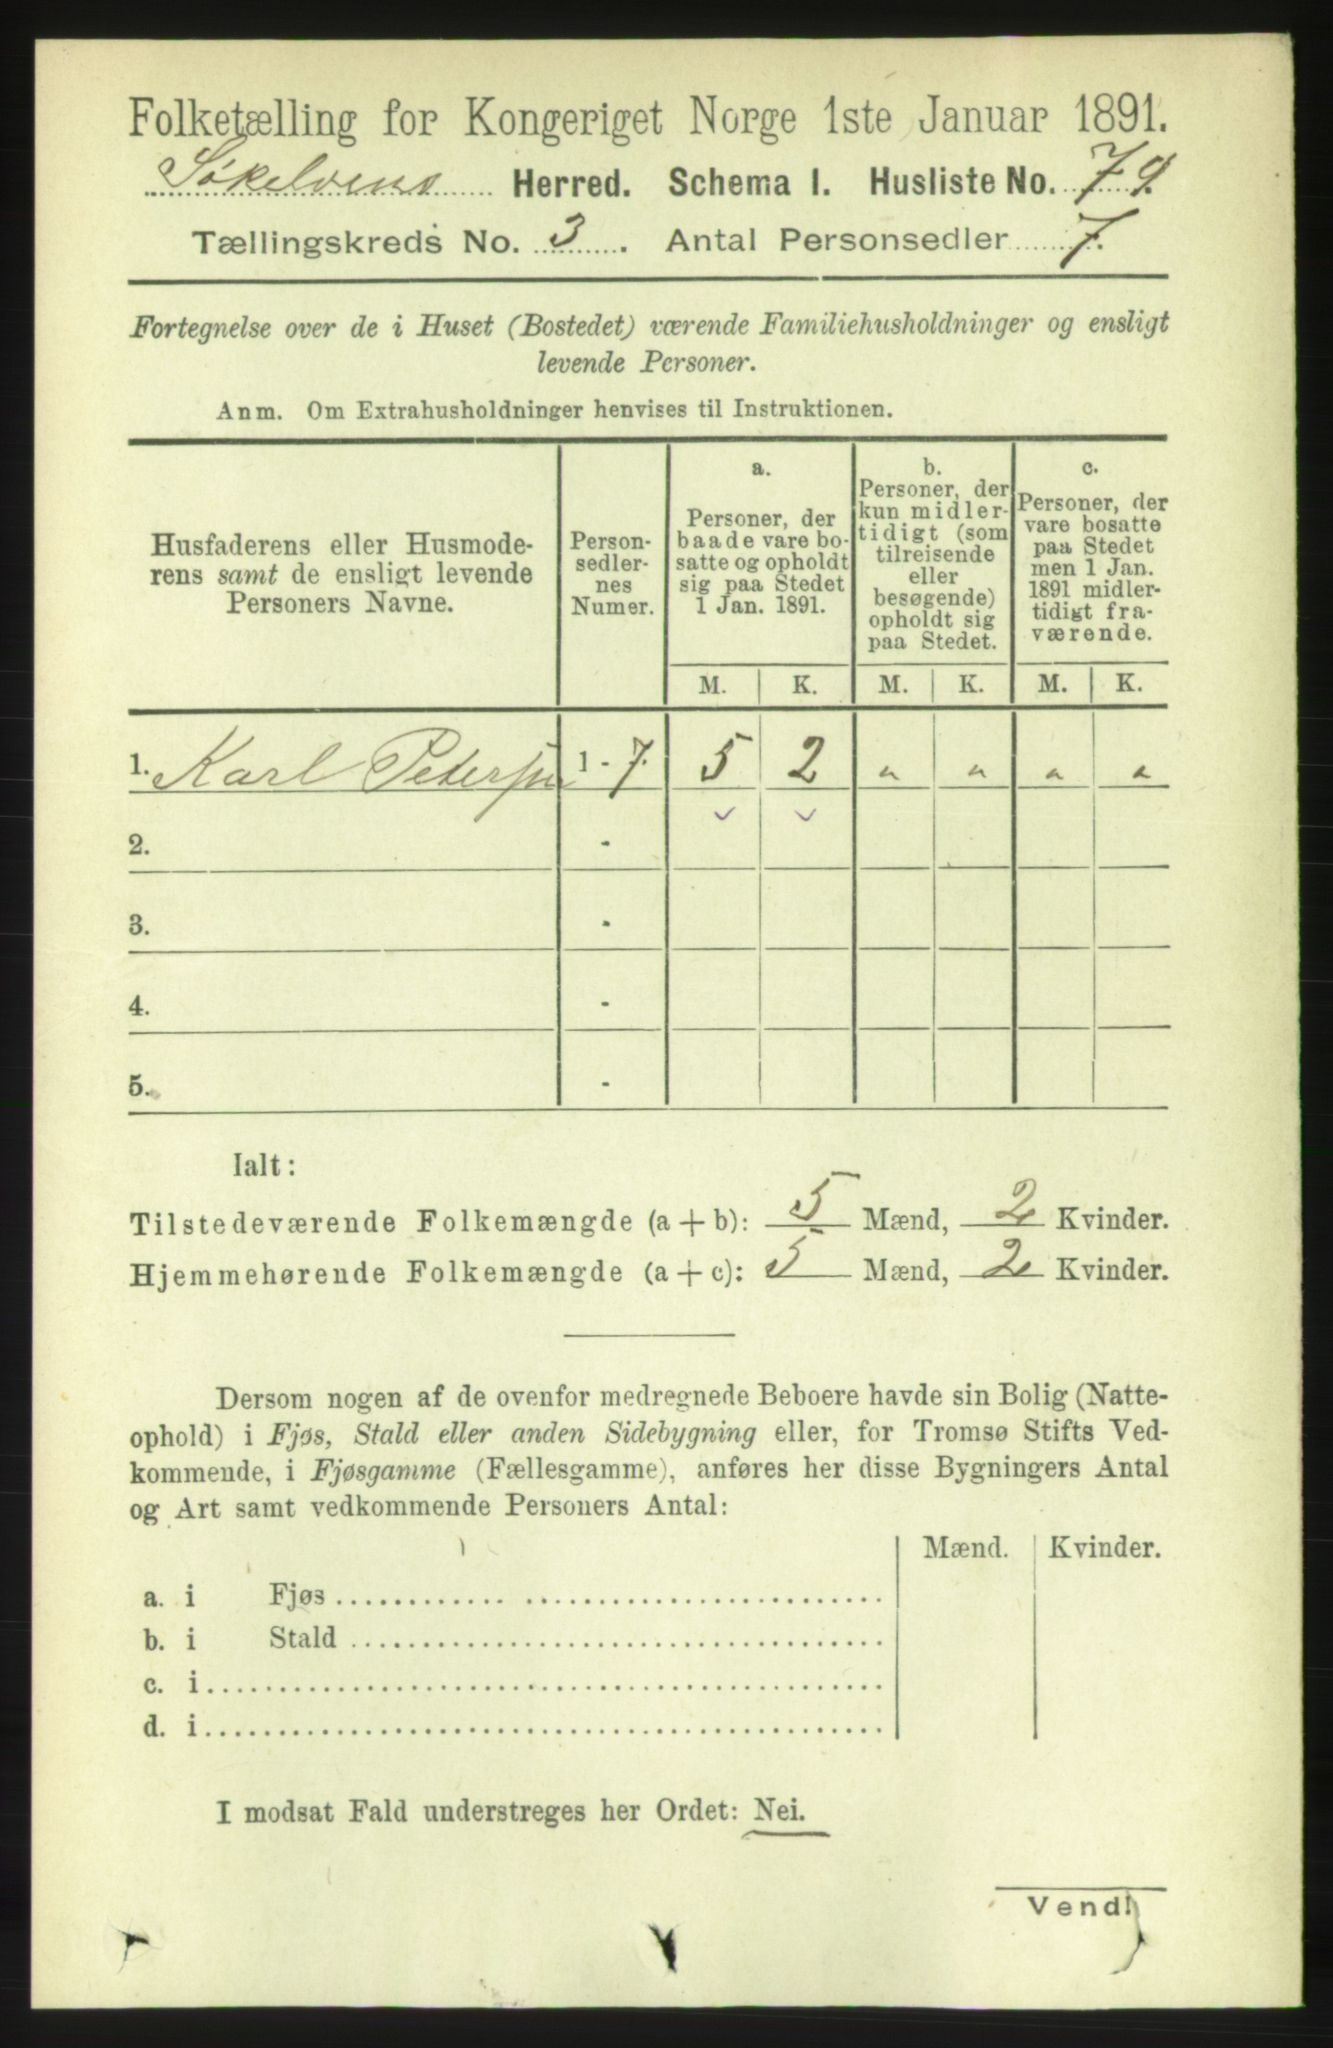 Folketælling for Kongeriget Norge 1ste Januar 1891.
Søkelvens Herred. Schema I. Husliste No. 79.
Tællingskreds No. 3. Antal Personsedler 7.
Fortegnelse over de i Huset (Bostedet) værende Familiehusholdninger og ensligt
levende Personer.
Anm. Om Extrahusholdninger henvises til Instruktionen.
Husfaderens eller Husmode-
rens samt de ensligt levende
Personers Navne.
Person-
sedler-
nes
Numer.
a.
Personer, der
baade vare bo-
satte og opholdt
sig paa Stedet
1 Jan. 1891.
b.
Personer, der
kun midler-
tidigt (som
tilreisende
eller
besøgende)
opholdt sig
paa Stedet.
c.
Personer, der
vare bosatte
paa Stedet
men 1 Jan.
1891 midler-
tidigt fra-
værende.
M. K. M. K. M. K.
1. Karl Petersen 1 - 7. 5 2 " " " "
2. -
3. -
4. -
5. -
Ialt:
Tilstedeværende Folkemængde (a + b): 5 Mænd, 2 Kvinder.
Hjemmehørende Folkemængde (a + c): 5 Mænd, 2 Kvinder.
Dersom nogen af de ovenfor medregnede Beboere havde sin Bolig (Natte-
ophold) i Fjøs, Stald eller anden Sidebygning eller, for Tromsø Stifts Ved-
kommende, i Fjøsgamme (Fællesgamme), anføres her disse Bygningers Antal
og Art samt vedkommende Personers Antal:
Mænd. Kvinder.
a. i Fjøs
b. i Stald
c. i
d. i
I modsat Fald understreges her Ordet: Nei.
Vend!